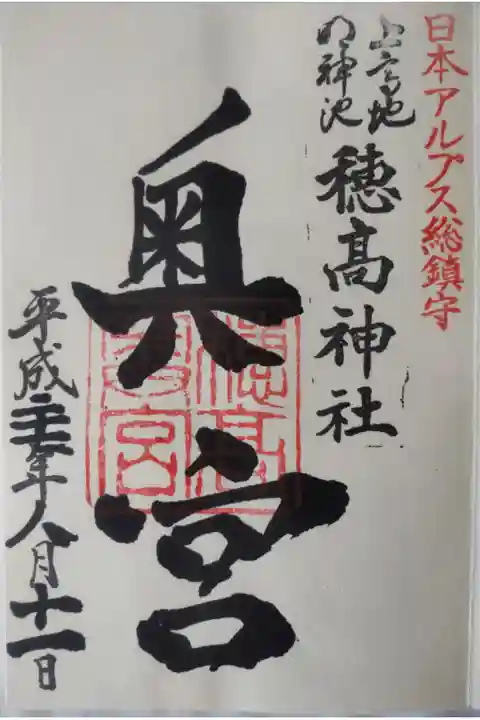 日本アルプス総鎮守
上高地
明神池
穂高神社
奥宮
穂高
奥宮
平成二十七年八月十一日